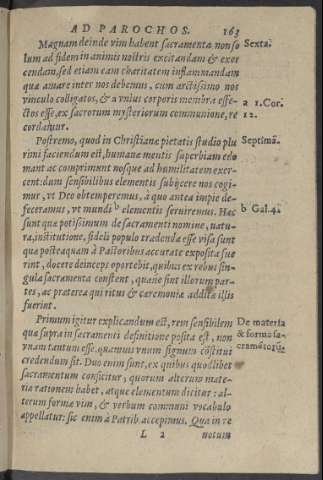 AD PAROCHOS. 163
Magnam deinde vim habent sacramenta non so
lum ad fidem in animis nostris excitandam & exer
cendam, sed etiam eam charitatem inflammandam
qua amare inter nos debemus, cum arctissimo nos
vinculo colligatos, & a vnius corporis membra effe-
ctos esse, ex sacrorum mysteriorum communione, re
cordamur.
Sexta.
a 1. Cor.
12.
Postremo, quod in Christianæ pietatis studio plu
rimi faciendum est, humanæ mentis superbiam edo
mant ac comprimunt nosque ad humilitatem exer-
cent: dum sensibilibus elementis subijcere nos cogi-
mur, vt Deo obtemperemus, à quo antea impie de-
feceramus, vt mundi b elementis seruiremus. Hæc
sunt quæ potissimum de sacramenti nomine, natu-
ra, institutione, fideli populo tradenda esse visa sunt
quæ posteaquam à Pastoribus accurate exposita fue
rint, docere deinceps oportebit, quibus ex rebus sin-
gula sacramenta constent, quæue sint illorum par-
tes, ac præterea qui ritus & ceremoniæ additæ illis
fuerint.
Septimã.
b Gal. 4.
Primum igitur explicandum est, rem sensibilem
quæ supra in sacramenti definitione posita est, non
vnam tantum esse. quamuis vnum signum cõstitui
credendum sit. Duo enim sunt, ex quibus quodlibet
sacramentum conficitur, quorum alterum mate-
ria rationem habet, atque elementum dicitur: al-
terum formæ vim, & verbum communi vocabulo
appellatur: sic enim à Patrib. accepimus. Qua in re
De materia
& forma sa-
cramẽtorũ.
L 2 notum